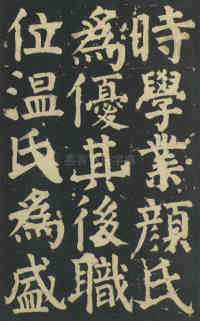 時學業顏氏
為優其後職
位温氏為盛